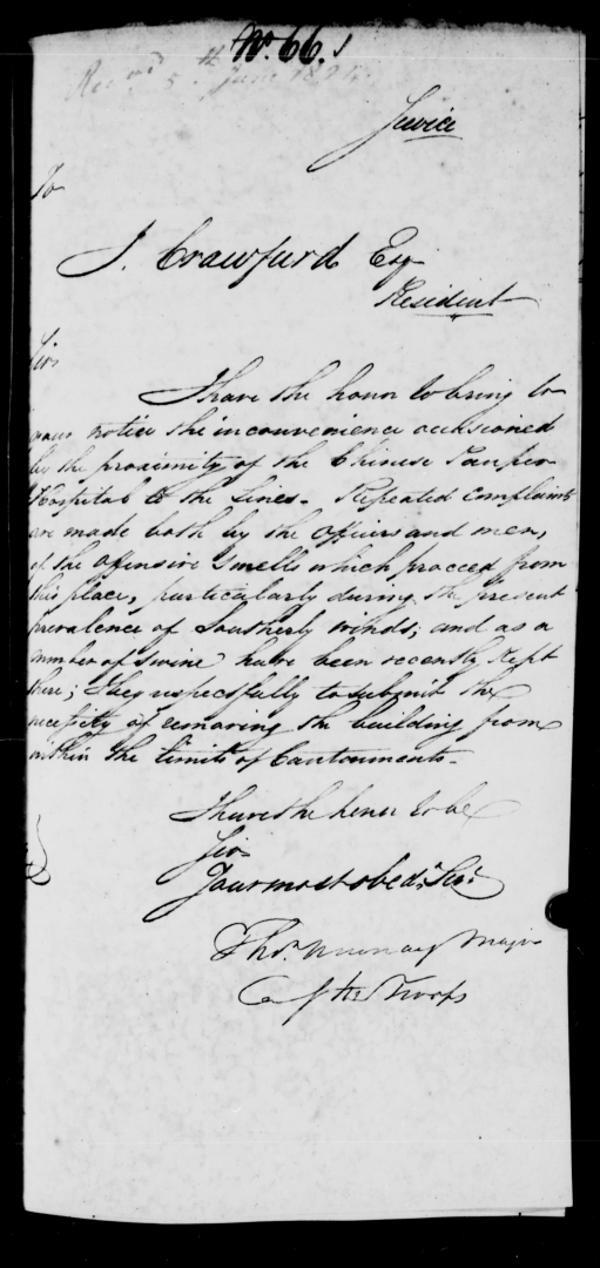 No. 66.
5th June 182
Service
To
J. Crawfurd Esqr
Resident
Sir
I have the honor to bring to
your notice the inconvenience occasioned
by the proximity of the Chinese Pauper
Hospital to the Lines. Repeated complaints
are made both by the Officers and men,
of the offensive smells which proceed from
this place, particularly during the present
prevalence of Southerly winds; and as a
number of swine have been recently kept
there; I beg respectfully to submit the
necessity of removing the building from
within the limits of Cantonments.
I have the honor to be
Sir
Your most obedt. Sert.
Thos. Murray Major
Troops